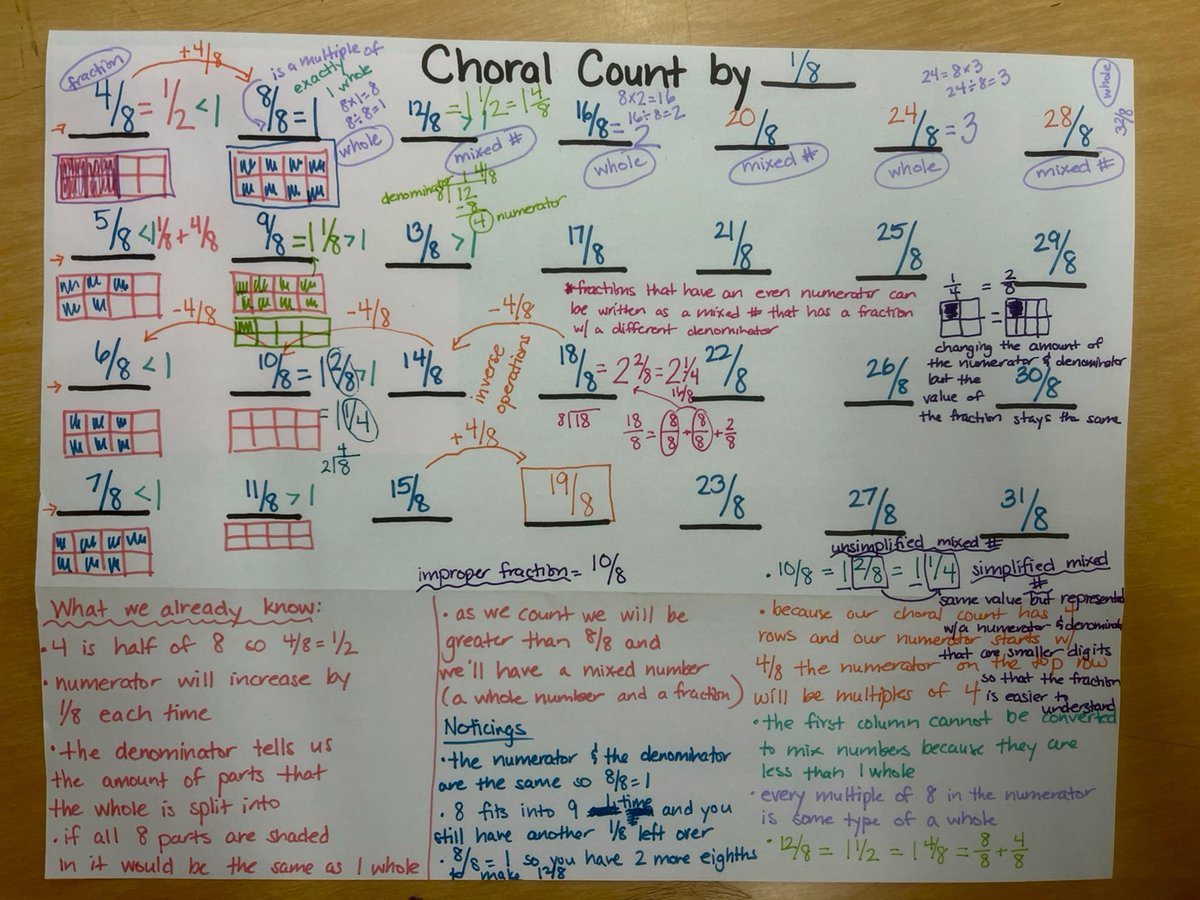 Choral Count by 1/8
fraction
+4/8
is a multiple of
exactly
1 whole
8×1=8
8÷8=1
4/8 = 1/2 < 1
8/8 = 1
whole
12/8 = 1 1/2 = 1 4/8
> 1
mixed #
8×2=16
16÷8=2
16/8 = 2
whole
20/8
mixed #
24=8×3
24÷8=3
24/8 = 3
whole
28/8
mixed #
whole
32/8
denominator
1 4/8
8 12
-8
4 numerator
5/8 < 1
1/8 + 4/8
9/8 = 1 1/8 > 1
13/8 > 1
17/8
21/8
25/8
29/8
* fractions that have an even numerator can
be written as a mixed # that has a fraction
w/ a different denominator
1/4 = 2/8
=
changing the amount of
the numerator & denominator
but the
value of
the fraction stays the same
-4/8
-4/8
-4/8
inverse
operations
+4/8
6/8 < 1
10/8 = 1 2/8 > 1
= 1 1/4
4
2 8
14/8
18/8 = 2 2/8 = 2 1/4
8 18
16/8
18/8 = 8/8 + 8/8 + 2/8
22/8
26/8
30/8
7/8 < 1
11/8 > 1
15/8
19/8
23/8
27/8
31/8
improper fraction = 10/8
unsimplified mixed #
• 10/8 = 1 2/8 = 1 1/4
simplified mixed
#
same value but represented
w/ a numerator & denominator
that are smaller digits
so that the fraction
is easier to
understand
What we already know:
• 4 is half of 8 so 4/8 = 1/2
• numerator will increase by
1/8 each time
• the denominator tells us
the amount of parts that
the whole is split into
• if all 8 parts are shaded
in it would be the same as 1 whole
• as we count we will be
greater than 8/8 and
we'll have a mixed number
(a whole number and a fraction)
Noticings
• the numerator & the denominator
are the same so 8/8 = 1
• 8 fits into 9 time and you
still have another 1/8 left over
• 8/8 = 1 so you have 2 more eighths
to make 12/8
• because our choral count has 4
rows and our numerator starts w/
4/8 the numerator on the top row
will be multiples of 4
• the first column cannot be converted
to mix numbers because they are
less than 1 whole
• every multiple of 8 in the numerator
is some type of a whole
• 12/8 = 1 1/2 = 1 4/8 = 8/8 + 4/8